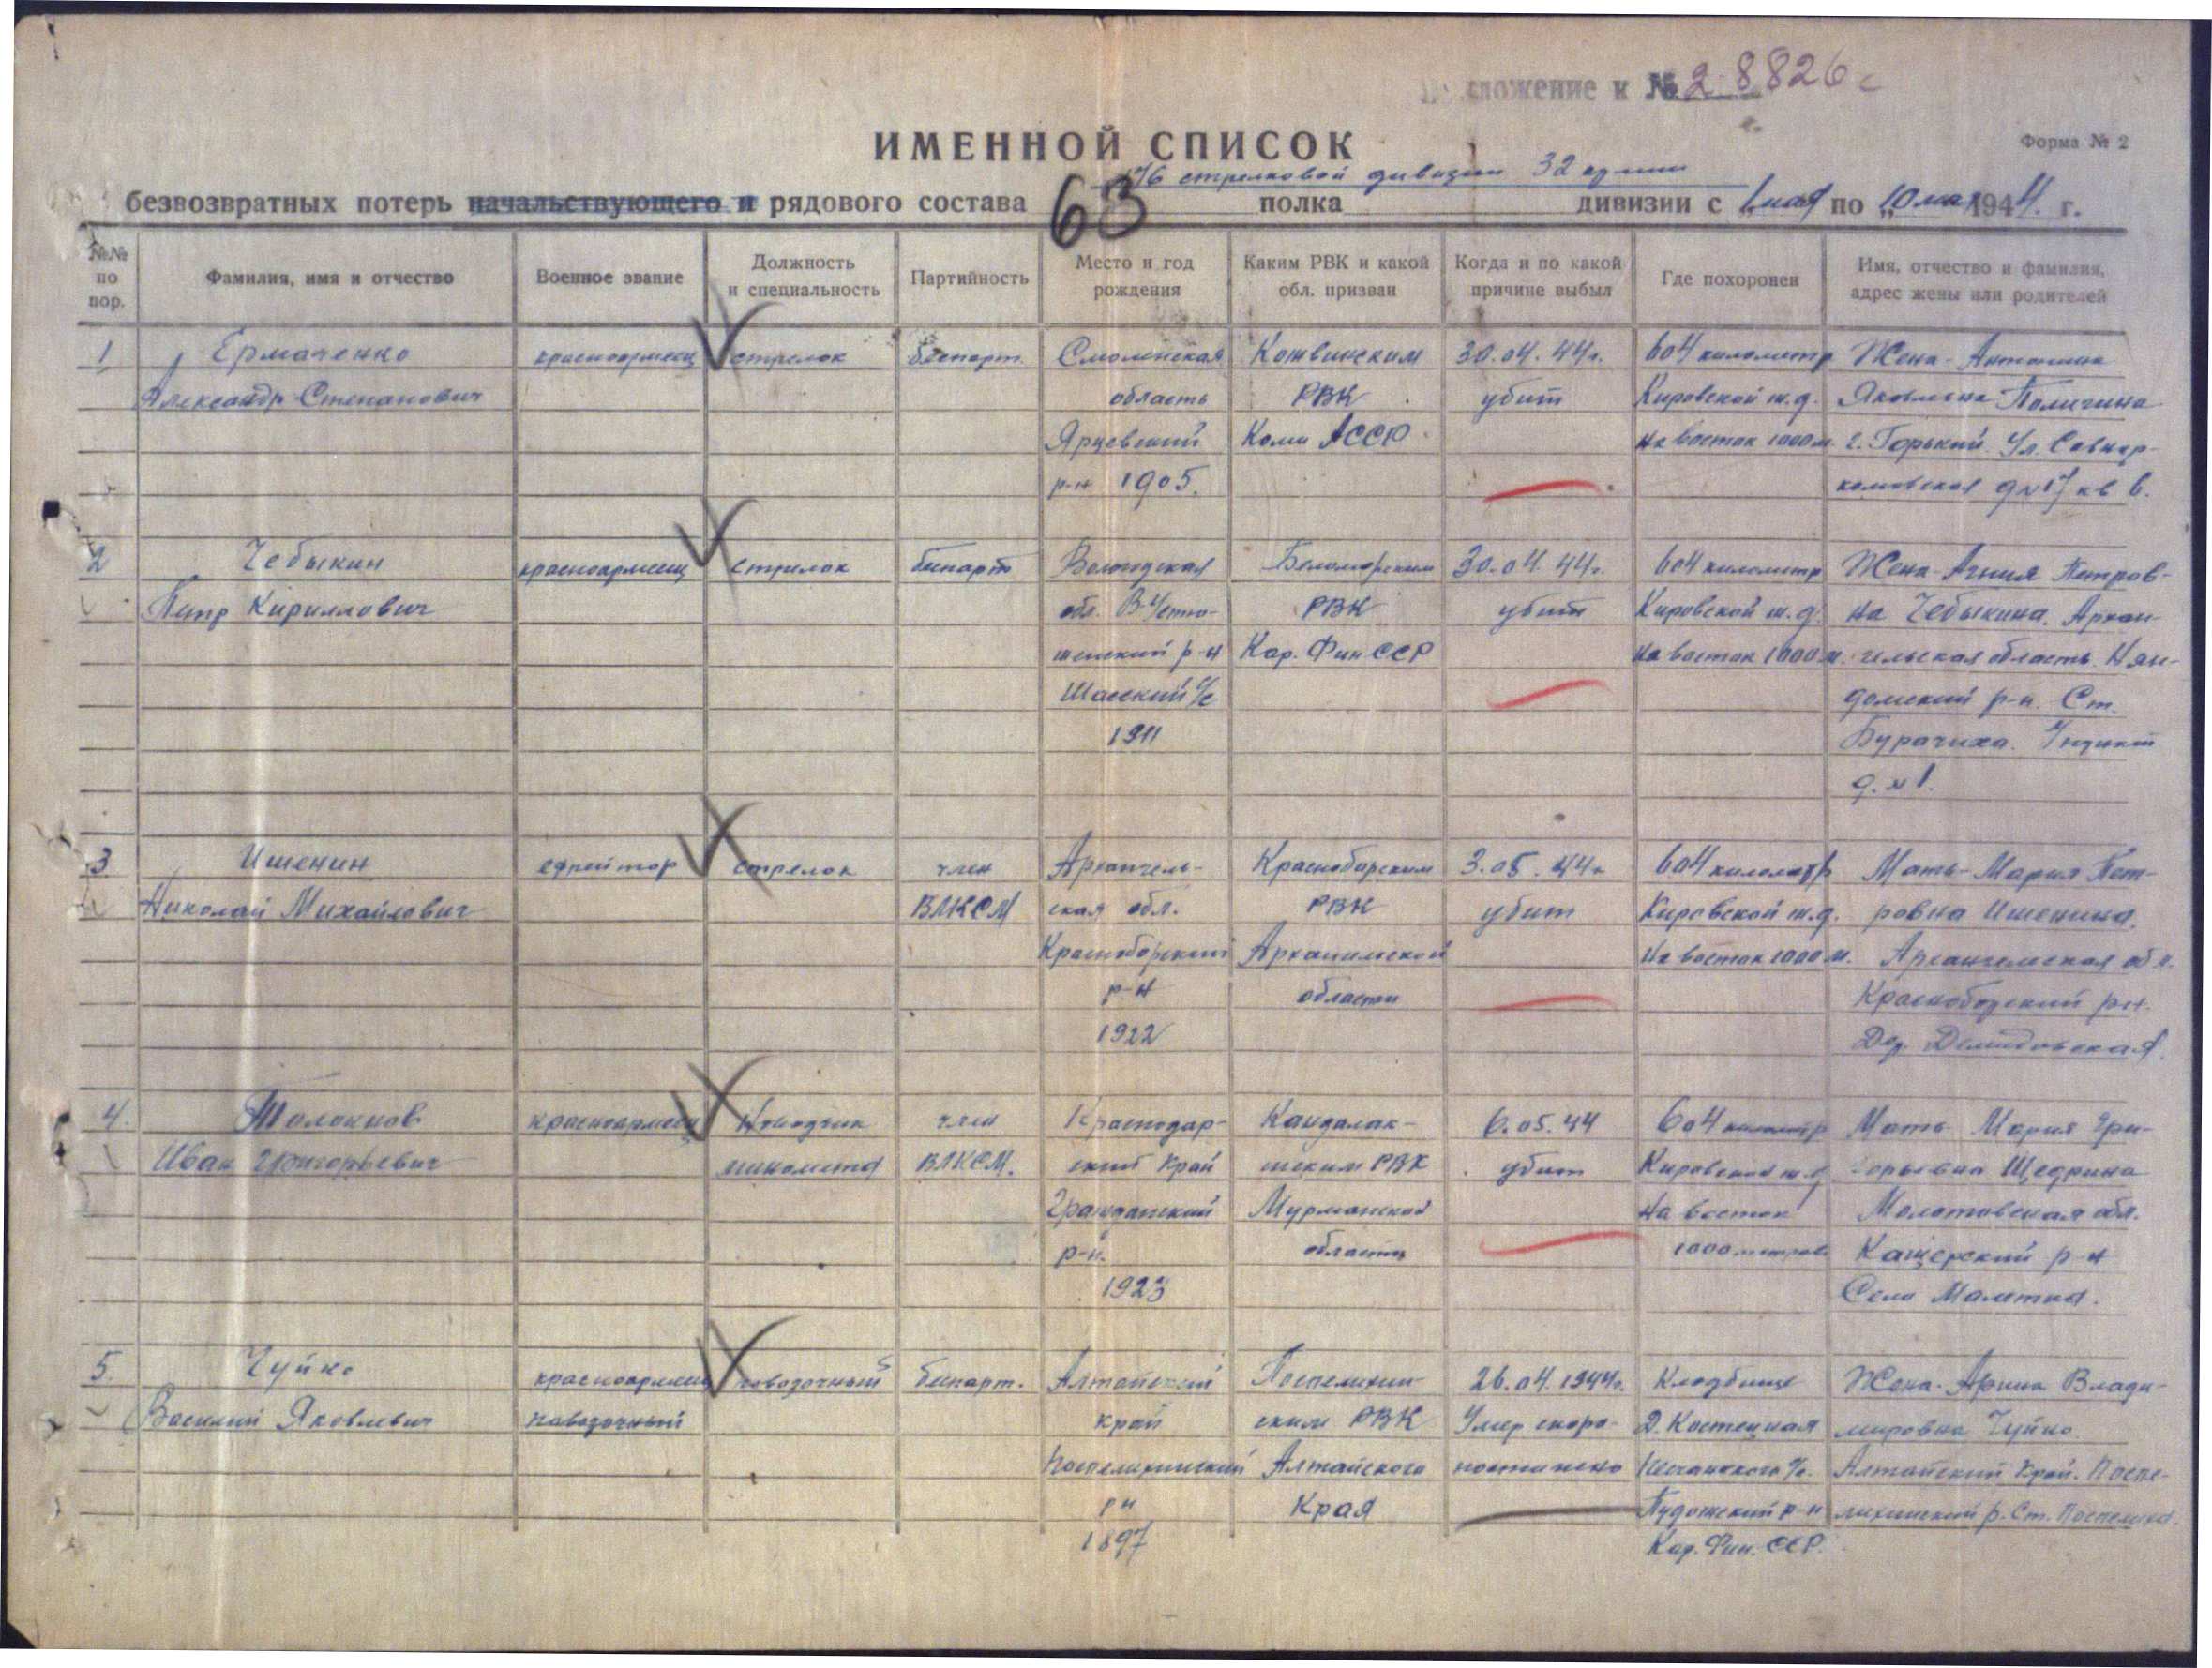 Приложение к № 28826с
ИМЕННОЙ СПИСОК
Форма № 2
176 стрелковой дивизии 32 армии
безвозвратных потерь начальствующего и рядового состава 63 полка дивизии с 1 мая по „10 мая 1944 г.
№№ по пор. Фамилия, имя и отчество Военное звание Должность и специальность Партийность Место и год рождения Каким РВК и какой обл. призван Когда и по какой причине выбыл Где похоронен Имя, отчество и фамилия, адрес жены или родителей
1 Ермаченко красноармеец стрелок беспарт. Смоленская Кожвинским 30.04.44г. 604 километр Жена - Антонина
Александр Степанович область РВК убит Кировской ж.д. Яковлевна Поличина
Ярцевский Коми АССР на восток 1000 м. г. Горький Ул. Совнар-
р-н 1905. комовская д №17 кв 6.
2 Чебыкин красноармеец стрелок беспарт Вологодская Беломорским 30.04.44г. 604 километр Жена Агния Петров-
Петр Кириллович обл. В-Устю- РВК убит Кировской ж.д. на Чебыкина. Архан-
женский р-н Кар. Фин ССР на восток 1000 м. гельская область Нян-
Шасский с/с домский р-н. Ст.
1911 Бурачиха.
д. № 1.
3 Ишенин ефрейтор стрелок член Архангель- Красноборским 3.05.44г 604 километр Мать - Мария Пет-
Николай Михайлович ВЛКСМ ская обл. РВК убит Кировской ж.д. ровна Ишенина.
Красноборский Архангельской на восток 1000 м. Архангельская обл.
р-н области Красноборский р-н.
1922 Дер. Демидовская.
4. Толокнов красноармеец Наводчик член Краснодар- Кандалак- 6.05.44 604 километр Мать Мария Гри-
Иван Григорьевич миномета ВЛКСМ. ский Край шским РВК убит Кировской ж.д горьевна Щедрина
Гражданский Мурманской на восток Молотовская обл.
р-н. области 1000 метров Кащерский р-н
1923 Село
5. Чуйко красноармеец повозочный беспарт. Алтайский Поспелихин- 26.04.1944г. Кладбище Жена - Арина Влади-
Василий Яковлевич повозочный край ским РВК Умер скоро- Д. Костецкая мировна Чуйко
Поспелихинский Алтайского постижно Песчанского с/с. Алтайский Край. Поспе-
рн Края Пудожский р-н лихинский р. Ст. Поспелиха.
1897 Кар. Фин. ССР.